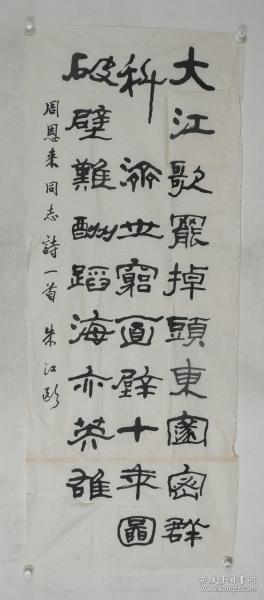 大江歌罷掉頭東邃密群
科濟世窮面壁十年圖
破壁難酬蹈海亦英雄
周恩来同志詩一首 朱江